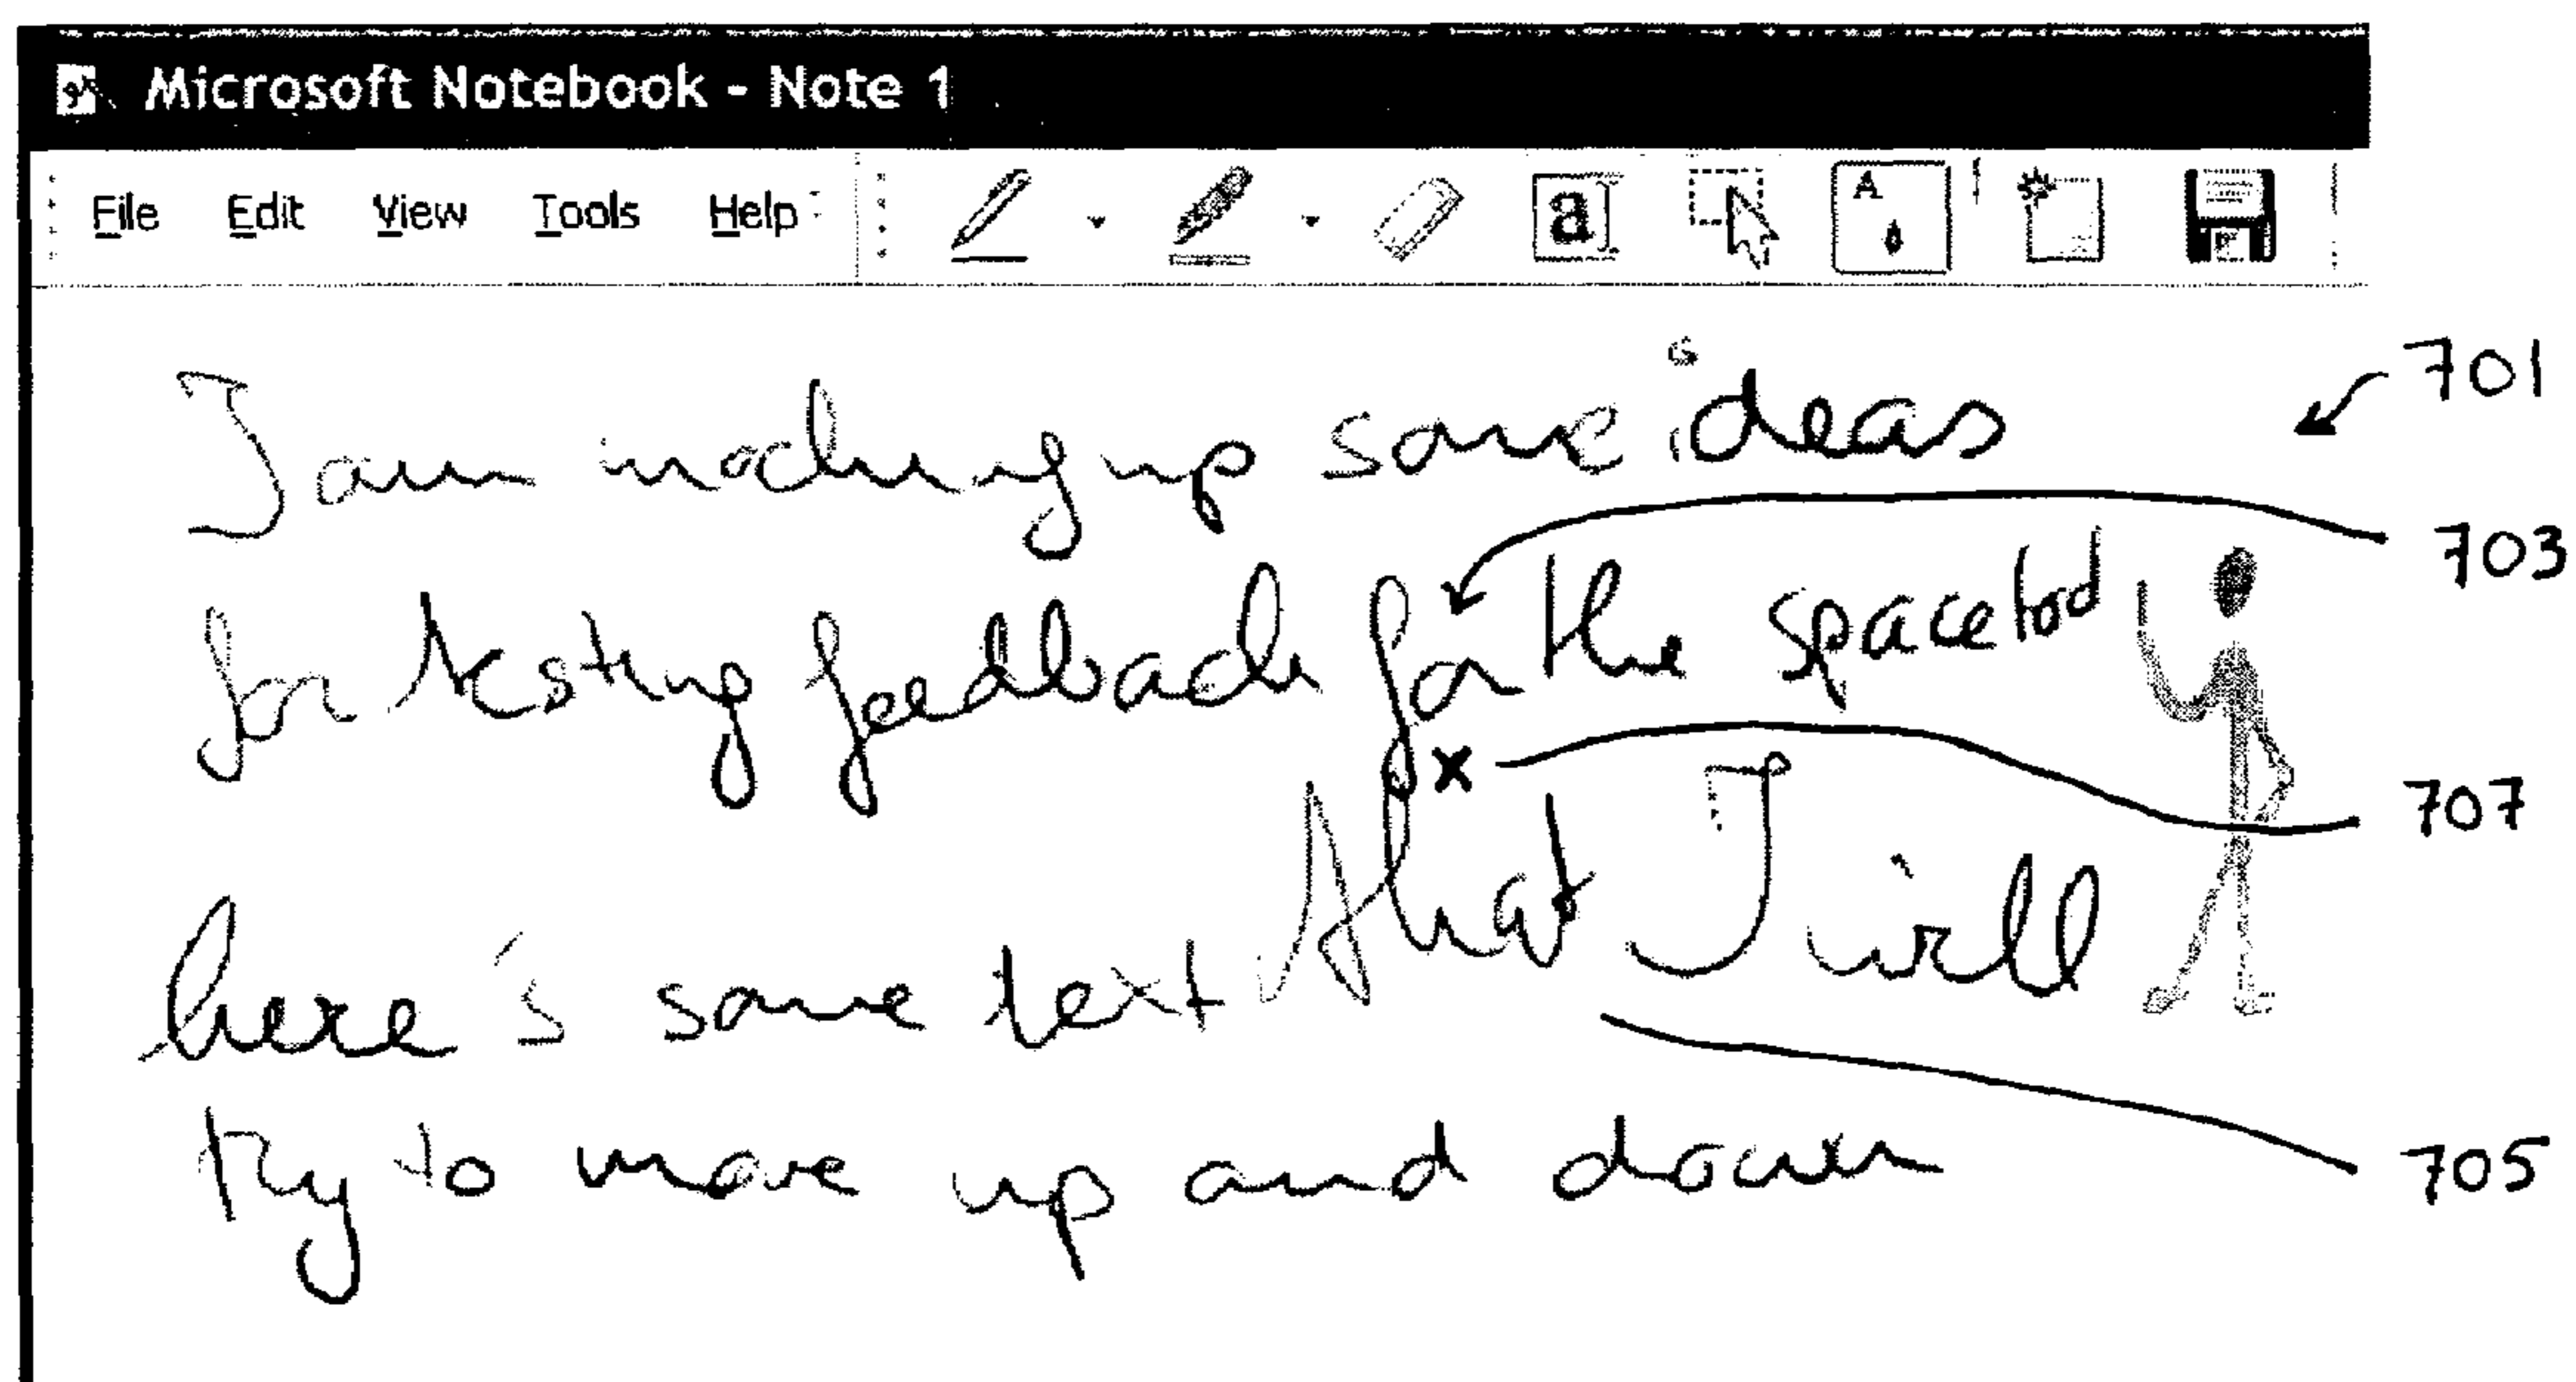 Microsoft Notebook - Note 1
File Edit View Tools Help a A
I am making up some ideas 701
703
for testing feedback for the space tool
x 707
here's some text that I will
705
try to move up and down